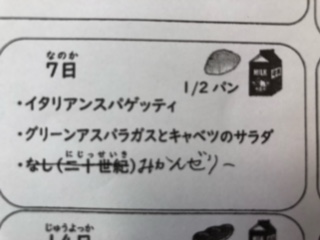 なのか
7日
MILK
1/2 パン
・イタリアンスパゲッティ
・グリーンアスパラガスとキャベツのサラダ
にじっせいき
・なし(二十世紀)みかんゼリー
じゅうよっか
14日